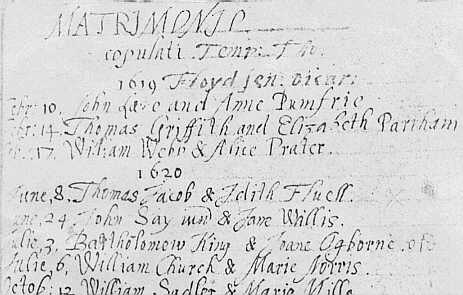 MATRIMONIO
copulati Temp: Tho.
1619 Floyd Jen: vicar:
Febr: 10. John and Anne Pumfrie
br: 14. Thomas Griffith and Elizabeth Partham
17. William Webb & Alice Prater.
1620
June, 8. Thomas Jacob & Edith Fluell.
June, 24. John Say und & Jane Willis.
Julie, 3. Bartholomew King & Joane Ogborne. eod
Julie 6, William Church & Marie Norris.
Octob: 12 William Sadler & Marie Mills